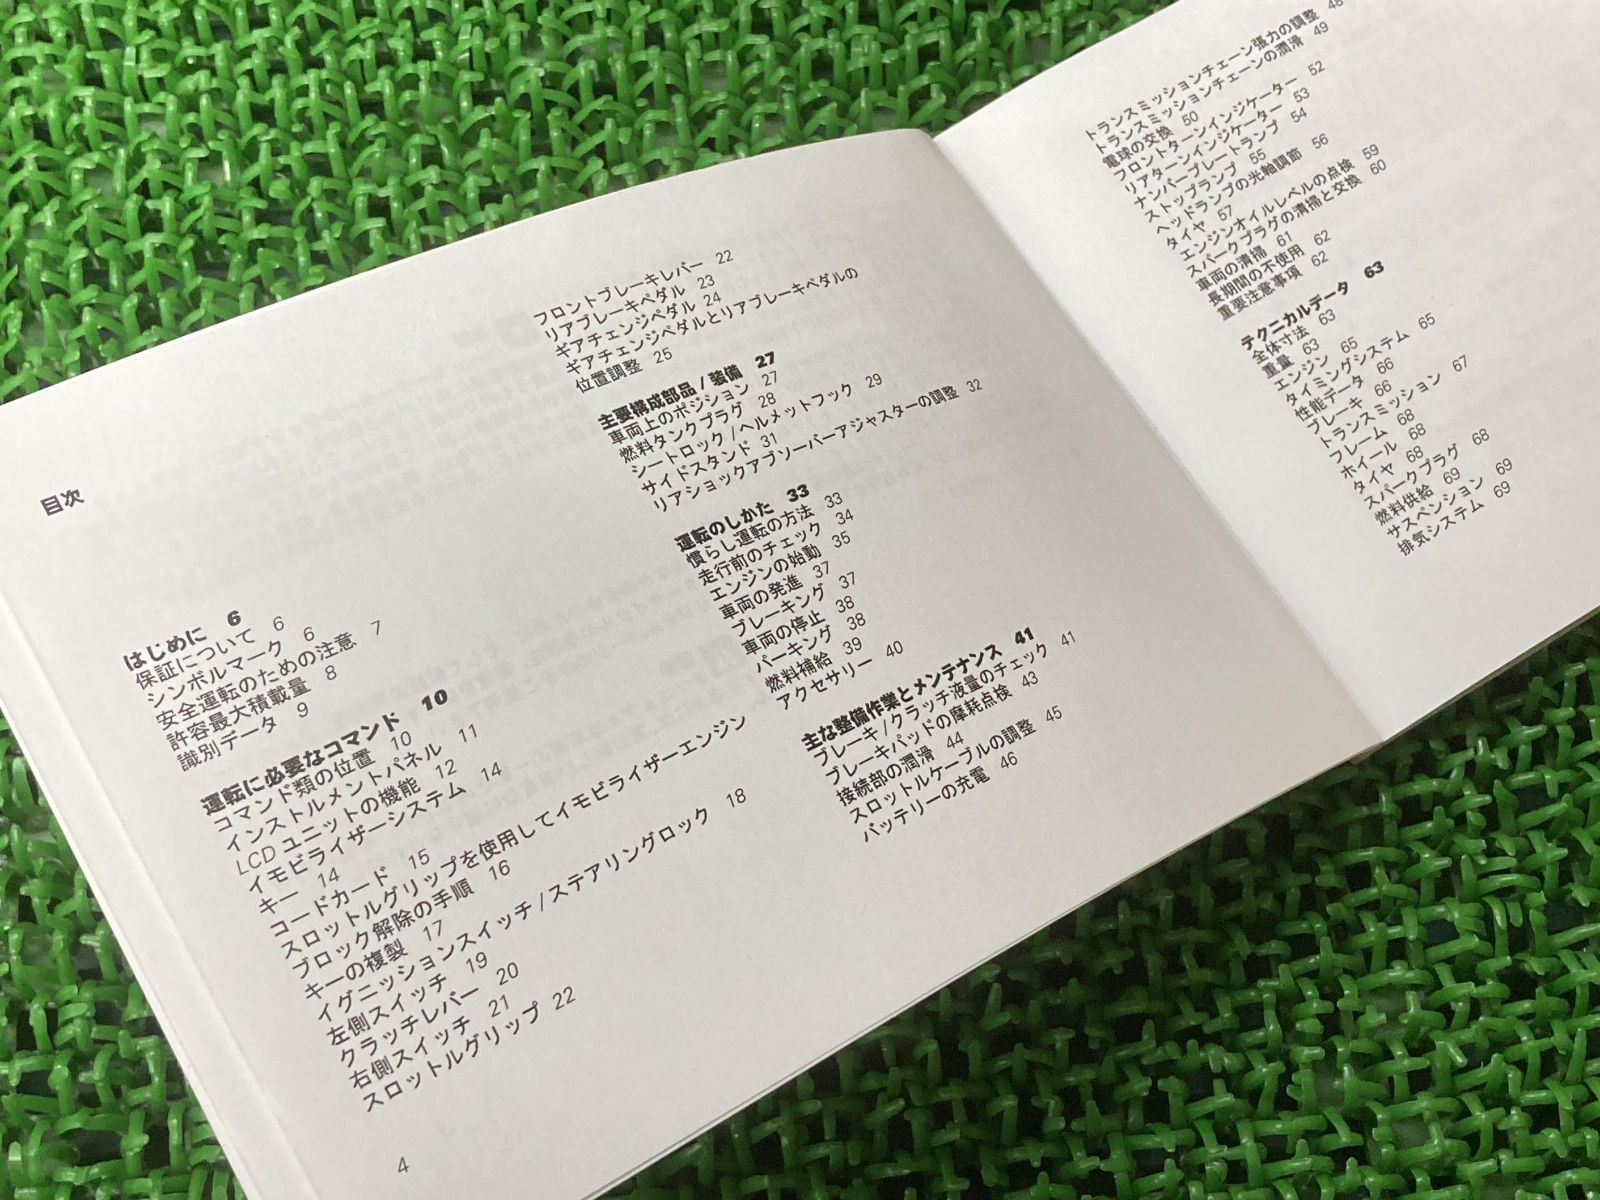 目次
はじめに 6
保証について 6
シンボルマーク 6
安全運転のための注意 7
許容最大積載量 8
識別データ 9
運転に必要なコマンド 10
コマンド類の位置 10
インストルメントパネル 11
LCD ユニットの機能 12
イモビライザーシステム 14
キー 14
コードカード 15
スロットルグリップを使用してイモビライザーエンジン
ブロック解除の手順 16
キーの複製 17
イグニッションスイッチ / ステアリングロック 18
左側スイッチ 19
クラッチレバー 20
右側スイッチ 21
スロットルグリップ 22
フロントブレーキレバー 22
リアブレーキペダル 23
ギアチェンジペダル 24
ギアチェンジペダルとリアブレーキペダルの
位置調整 25
主要構成部品 / 装備 27
車両上のポジション 27
燃料タンクプラグ 28
シートロック / ヘルメットフック 29
サイドスタンド 31
リアショックアブソーバーアジャスターの調整 32
運転のしかた 33
慣らし運転の方法 33
走行前のチェック 34
エンジンの始動 35
車両の発進 37
ブレーキング 37
車両の停止 38
パーキング 38
燃料補給 39
アクセサリー 40
主な整備作業とメンテナンス 41
ブレーキ / クラッチ液量のチェック 41
ブレーキパッドの摩耗点検 43
接続部の潤滑 44
スロットルケーブルの調整 45
バッテリーの充電 46
4
トランスミッションチェーン張力の調整 48
トランスミッションチェーンの潤滑 49
電球の交換 50
フロントターンインジケーター 52
リアターンインジケーター 53
ナンバープレートランプ 54
ストップランプ 55
ヘッドランプの光軸調節 56
タイヤ 57
エンジンオイルレベルの点検 59
スパークプラグの清掃と交換 60
車両の清掃 61
長期間の不使用 62
重要注意事項 62
テクニカルデータ 63
全体寸法 63
重量 63
エンジン 65
タイミングシステム 65
性能データ 66
ブレーキ 66
トランスミッション 67
フレーム 68
ホイール 68
タイヤ 68
スパークプラグ 68
燃料供給 69
サスペンション 69
排気システム 69